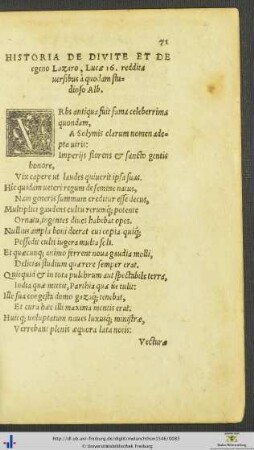 71
HISTORIA DE DIVITE ET DE
egeno Lazaro, Lucæ 16. reddita
uersibus à quodam stu-
dioso Alb.
VRbs antiqua fuit fama celeberrima
quondam,
A Solymis clarum nomen ade-
pta uiris:
Imperijs florens & sancto gentis
honore,
Vix capere ut laudes quiuerit ipsa suas.
Hic quidam ueteri regum de semine natus,
Nam generis summum creditur esse decus,
Multiplici gaudens cultu rerumq; potente
Ornatu, ingentes diues habebat opes.
Nullius ampla boni deerat cui copia: quiq;
Possedit culti iugera multa soli.
Et quæcunq; animo ferrent noua gaudia molli,
Delicias studium quærere semper erat.
Quicquid & in tota pulchrum aut spectabile terra,
India quæ mittit, Parthia quæ ue tulit:
Ille sua congesta domo gazaq; tenebat,
Et cura hæc illi maxima mentis erat.
Huicq; uoluptatum naues luxusq; ministræ,
Verrebant plenis æquora lata notis:
Vecturæ
http://dl.ub.uni-freiburg.de/diglit/melanchthon1546/0083
© Universitätsbibliothek Freiburg